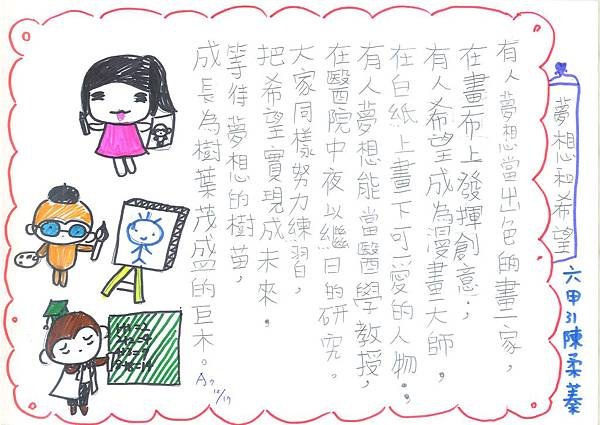 夢想和希望
六甲31陳柔蓁
有人夢想當出色的畫家，
在畫布上發揮創意；
有人希望成為漫畫大師，
在白紙上畫下可愛的人物；
有人夢想能當醫學教授，
在醫院中夜以繼日的研究。
大家同樣努力練習，
把希望實現成未來。
等待夢想的樹苗，
成長為樹葉茂盛的巨木。
12/19
1+1=2